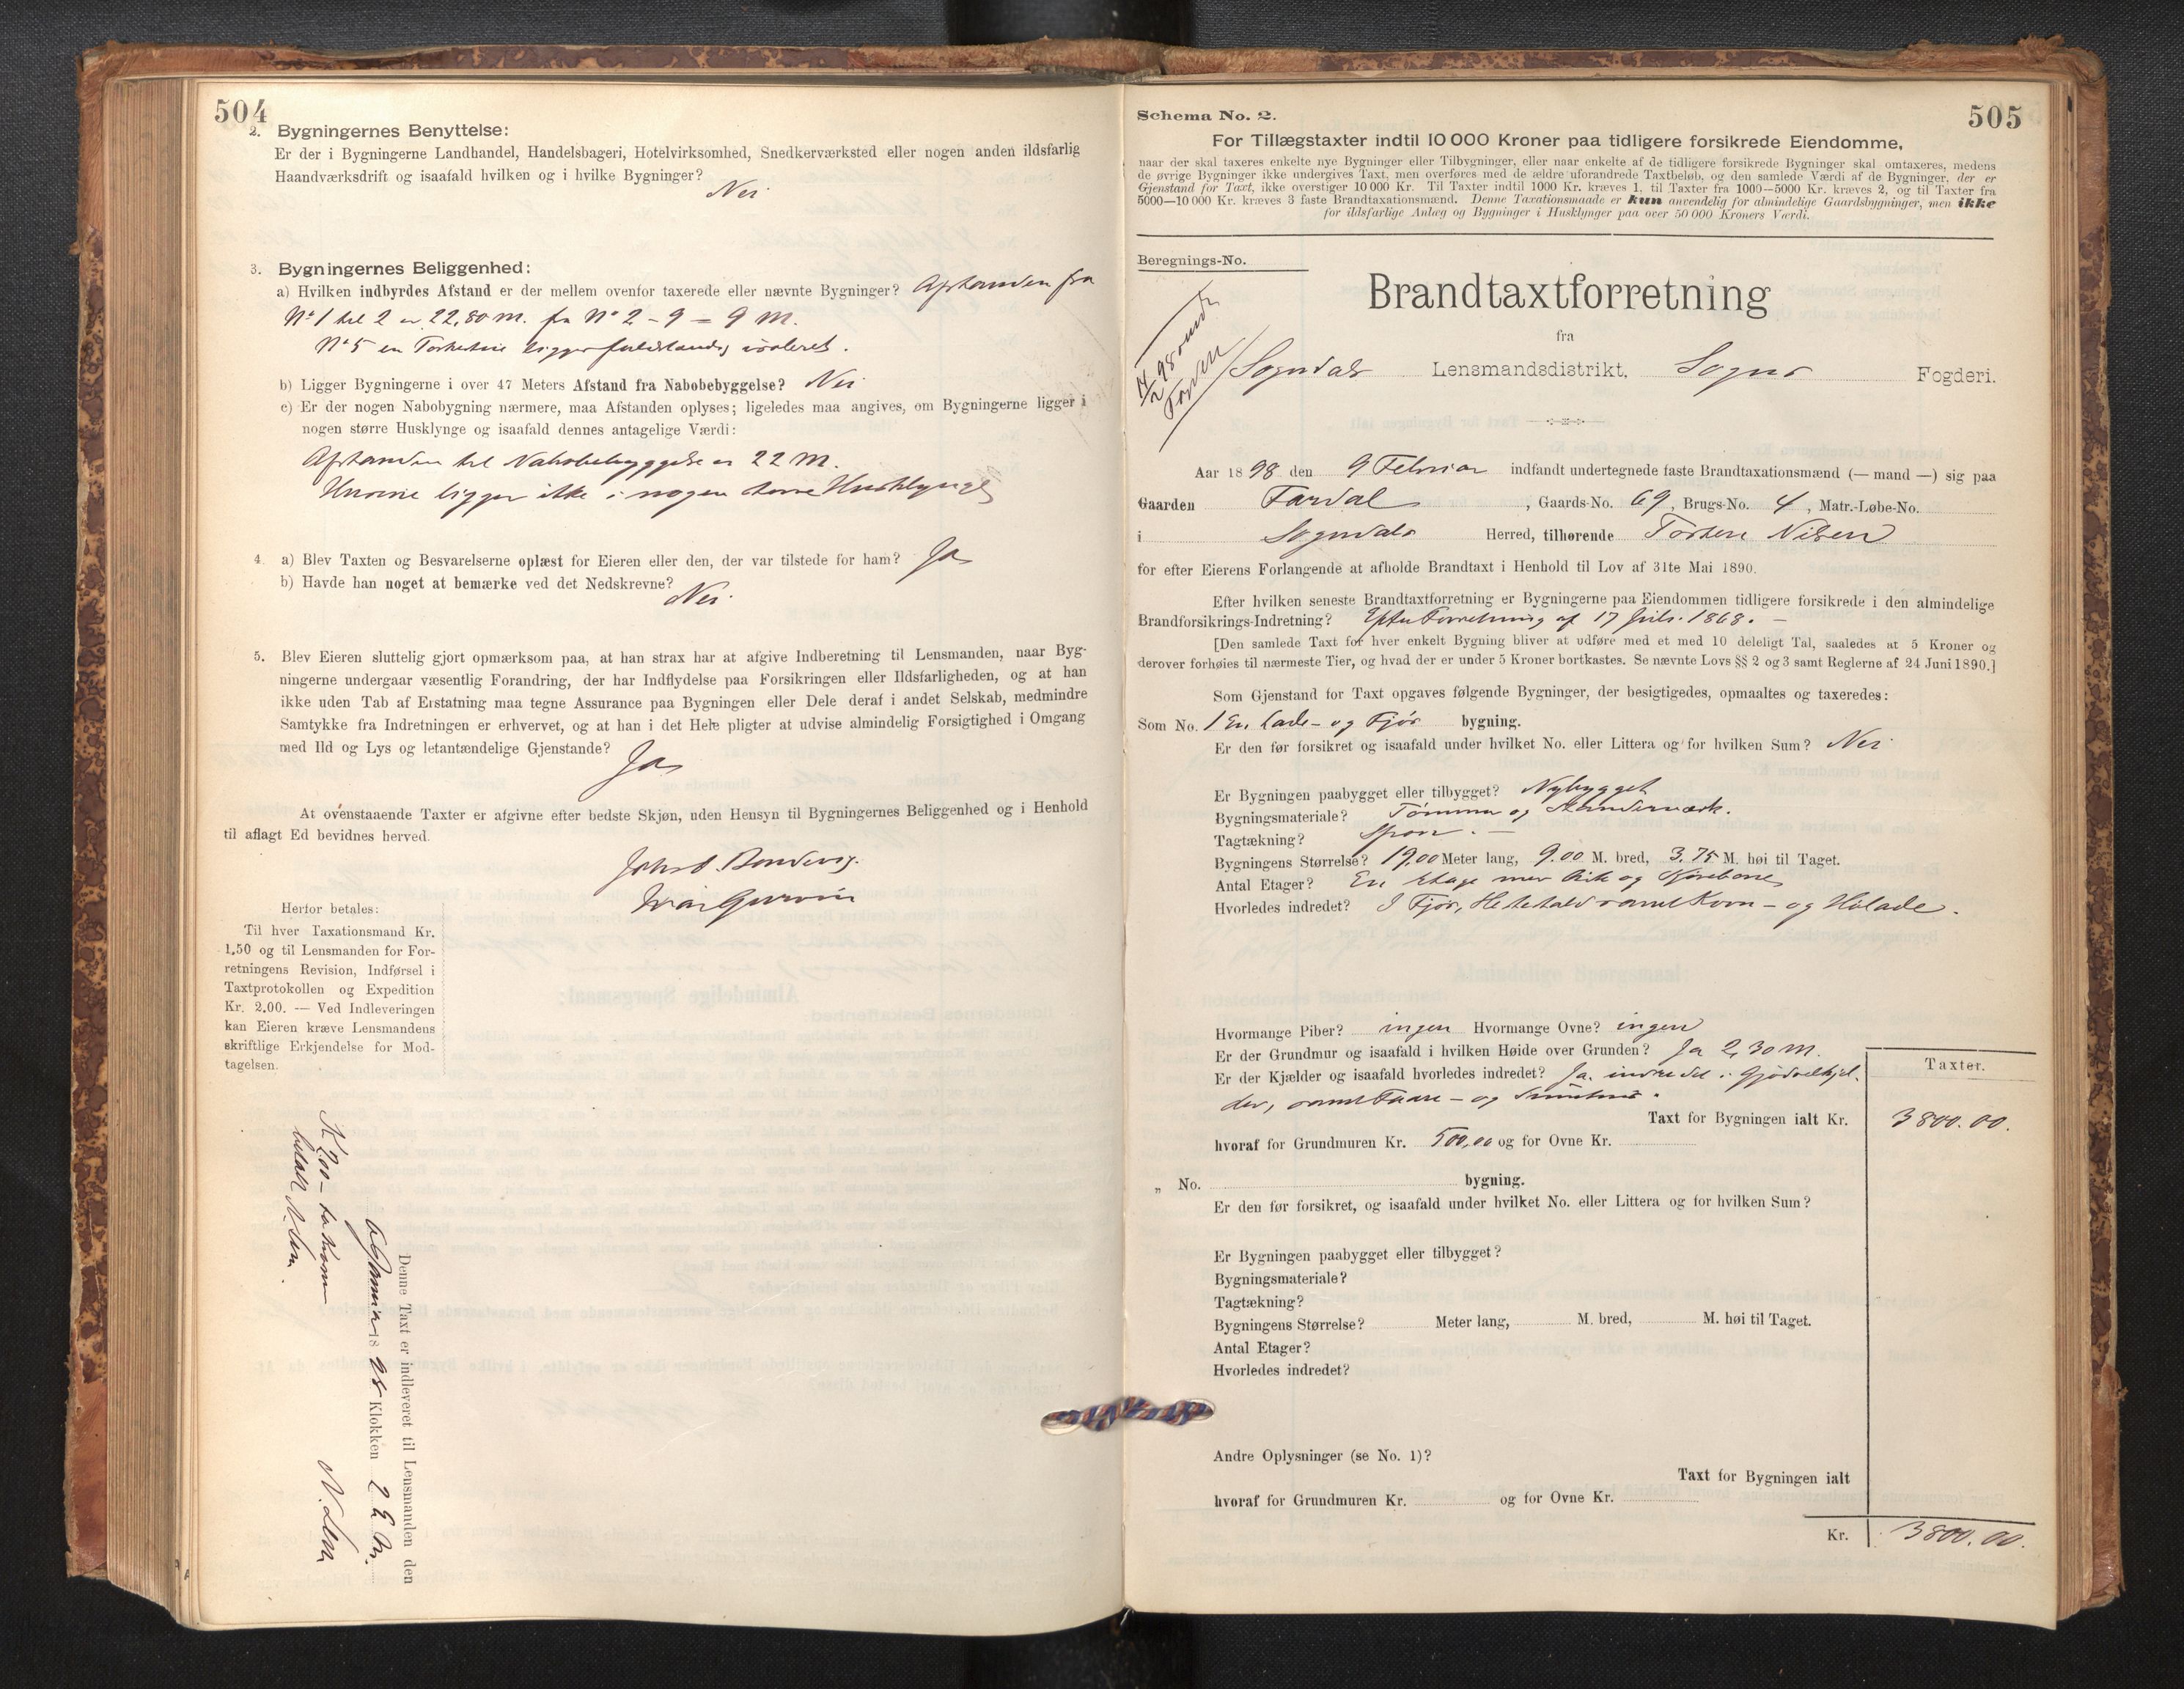 504
2. Bygningernes Benyttelse:
Er der i Bygningerne Landhandel, Handelsbageri, Hotelvirksomhed, Snedkerværksted eller nogen anden ildsfarlig
Haandværksdrift og isaafald hvilken og i hvilke Bygninger?
Nei
3. Bygningernes Beliggenhed:
a) Hvilken indbyrdes Afstand er der mellem ovenfor taxerede eller nævnte Bygninger? Afstanden fra
No 1 til 2 er 22,80 m. fra No 2 - 9 = 9 M.
No 5 en ligger fuldstændig isoleret.
b) Ligger Bygningerne i over 47 Meters Afstand fra Nabobebyggelse? Nei
c) Er der nogen Nabobygning nærmere, maa Afstanden oplyses; ligeledes maa angives, om Bygningerne ligger i
nogen større Husklynge og isaafald dennes antagelige Værdi:
Afstanden til Nabobebyggelse er 22 M.
Husene ligger ikke i nogen større Husklynge
4. a) Blev Taxten og Besvarelserne oplæst for Eieren eller den, der var tilstede for ham? Ja
b) Havde han noget at bemærke ved det Nedskrevne?
Nei
5. Blev Eieren sluttelig gjort opmærksom paa, at han strax har at afgive Indberetning til Lensmanden, naar Byg-
ningerne undergaar væsentlig Forandring, der har Indflydelse paa Forsikringen eller Ildsfarligheden, og at han
ikke uden Tab af Erstatning maa tegne Assurance paa Bygningen eller Dele deraf i andet Selskab, medmindre
Samtykke fra Indretningen er erhvervet, og at han i det Hele pligter at udvise almindelig Forsigtighed i Omgang
med Ild og Lys og letantændelige Gjenstande?
Ja
At ovenstaaende Taxter er afgivne efter bedste Skjøn, uden Hensyn til Bygningernes Beliggenhed og i Henhold
til aflagt Ed bevidnes herved.
Herfor betales:
Til hver Taxationsmand Kr.
1,50 og til Lensmanden for For-
retningens Revision, Indførsel i
Taxtprotokollen og Expedition
Kr. 2.00. — Ved Indleveringen
kan Eieren kræve Lensmandens
skriftlige Erkjendelse for Mod-
tagelsen.
Denne Taxt er indleveret til Lensmanden den
18 98 Klokken 2 E. M.
betalt
505
Schema No. 2.
For Tillægstaxter indtil 10 000 Kroner paa tidligere forsikrede Eiendomme,
naar der skal taxeres enkelte nye Bygninger eller Tilbygninger, eller naar enkelte af de tidligere forsikrede Bygninger skal omtaxeres, medens
de øvrige Bygninger ikke undergives Taxt, men overføres med de ældre uforandrede Taxtbeløb, og den samlede Værdi af de Bygninger, der er
Gjenstand for Taxt, ikke overstiger 10 000 Kr. Til Taxter indtil 1000 Kr. kræves 1, til Taxter fra 1000—5000 Kr. kræves 2, og til Taxter fra
5000—10 000 Kr. kræves 3 faste Brandtaxationsmænd. Denne Taxationsmaade er kun anvendelig for almindelige Gaardsbygninger, men ikke
for ildsfarlige Anlæg og Bygninger i Husklynger paa over 50 000 Kroners Værdi.
Beregnings-No.
Brandtaxtforretning
fra
Sogndals Lensmandsdistrikt, Sogns Fogderi.
Aar 1898 den 9 Februar indfandt undertegnede faste Brandtaxationsmænd (— mand —) sig paa
Gaarden Fardal, Gaards-No. 69, Brugs-No. 4, Matr.-Løbe-No.
i Sogndals Herred, tilhørende Torsten Nilsen
for efter Eierens Forlangende at afholde Brandtaxt i Henhold til Lov af 31te Mai 1890.
Efter hvilken seneste Brandtaxtforretning er Bygningerne paa Eiendommen tidligere forsikrede i den almindelige
Brandforsikrings-Indretning? Efter Forretning af 17 Juli 1868.
[Den samlede Taxt for hver enkelt Bygning bliver at udføre med et med 10 deleligt Tal, saaledes at 5 Kroner og
derover forhøies til nærmeste Tier, og hvad der er under 5 Kroner bortkastes. Se nævnte Lovs §§ 2 og 3 samt Reglerne af 24 Juni 1890.]
Som Gjenstand for Taxt opgaves følgende Bygninger, der besigtigedes, opmaaltes og taxeredes:
Som No. 1 En Lade- og Fjøs bygning.
Er den før forsikret og isaafald under hvilket No. eller Littera og for hvilken Sum? Nei
Er Bygningen paabygget eller tilbygget? Nybygget
Bygningsmateriale? Tømmer og Standerværk.
Tagtækning? Spon.
Bygningens Størrelse? 19.00 Meter lang, 9.00 M. bred, 3.75 M. høi til Taget.
Antal Etager? En Etage med Kik og
Hvorledes indredet? I Fjøs, Hestestald samt Korn- og Hølade.
Hvormange Piber? ingen Hvormange Ovne? ingen
Er der Grundmur og isaafald i hvilken Høide over Grunden? Ja 2,30 M.
Er der Kjælder og isaafald hvorledes indredet? Ja, indredet i Gjødselkjel-
der, samt Faare- og
Taxter.
Taxt for Bygningen ialt Kr. 3800.00.
hvoraf for Grundmuren Kr. 500,00 og for Ovne Kr.
„ No. bygning.
Er den før forsikret, og isaafald under hvilket No. eller Littera og for hvilken Sum?
Er Bygningen paabygget eller tilbygget?
Bygningsmateriale?
Tagtækning?
Bygningens Størrelse? Meter lang, M. bred, M. høi til Taget.
Antal Etager?
Hvorledes indredet?
Andre Oplysninger (se No. 1)?
Taxt for Bygningen ialt
hvoraf for Grundmuren Kr. og for Ovne Kr.
Kr. 3800.00.